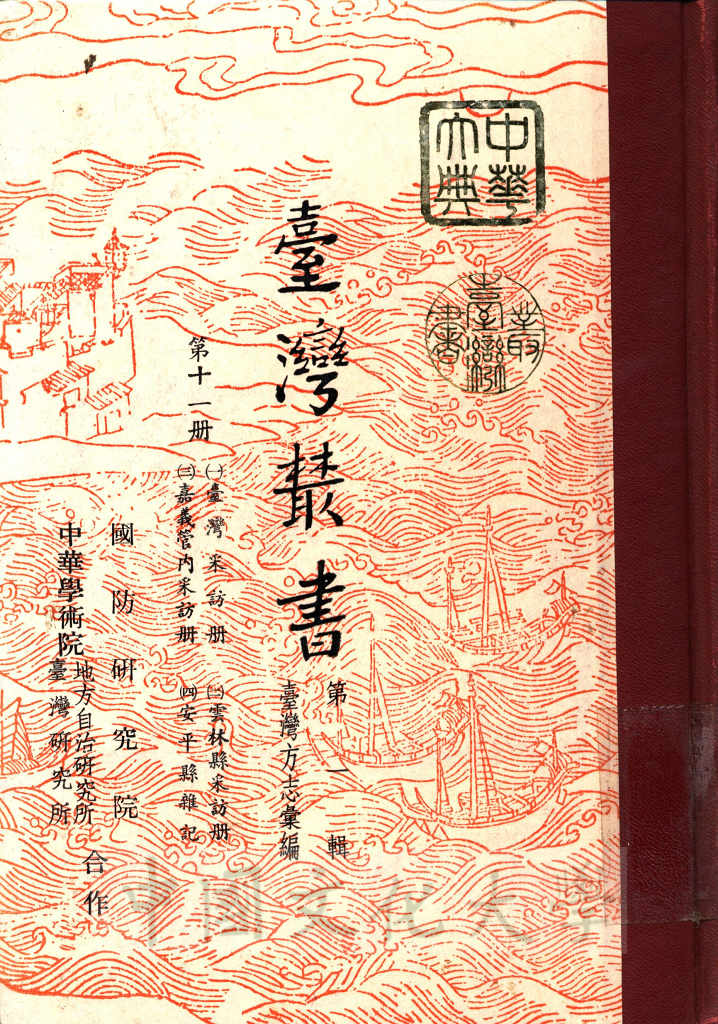 中華大典
臺灣叢書
臺灣叢書
第一輯
臺灣方志彙編
第十一册
㈠臺灣采訪册
㈡雲林縣采訪册
㈢嘉義管內采訪册
㈣安平縣雜記
國防研究院
中華學術院
地方自治研究所
臺灣研究所
合作
中國文化大學